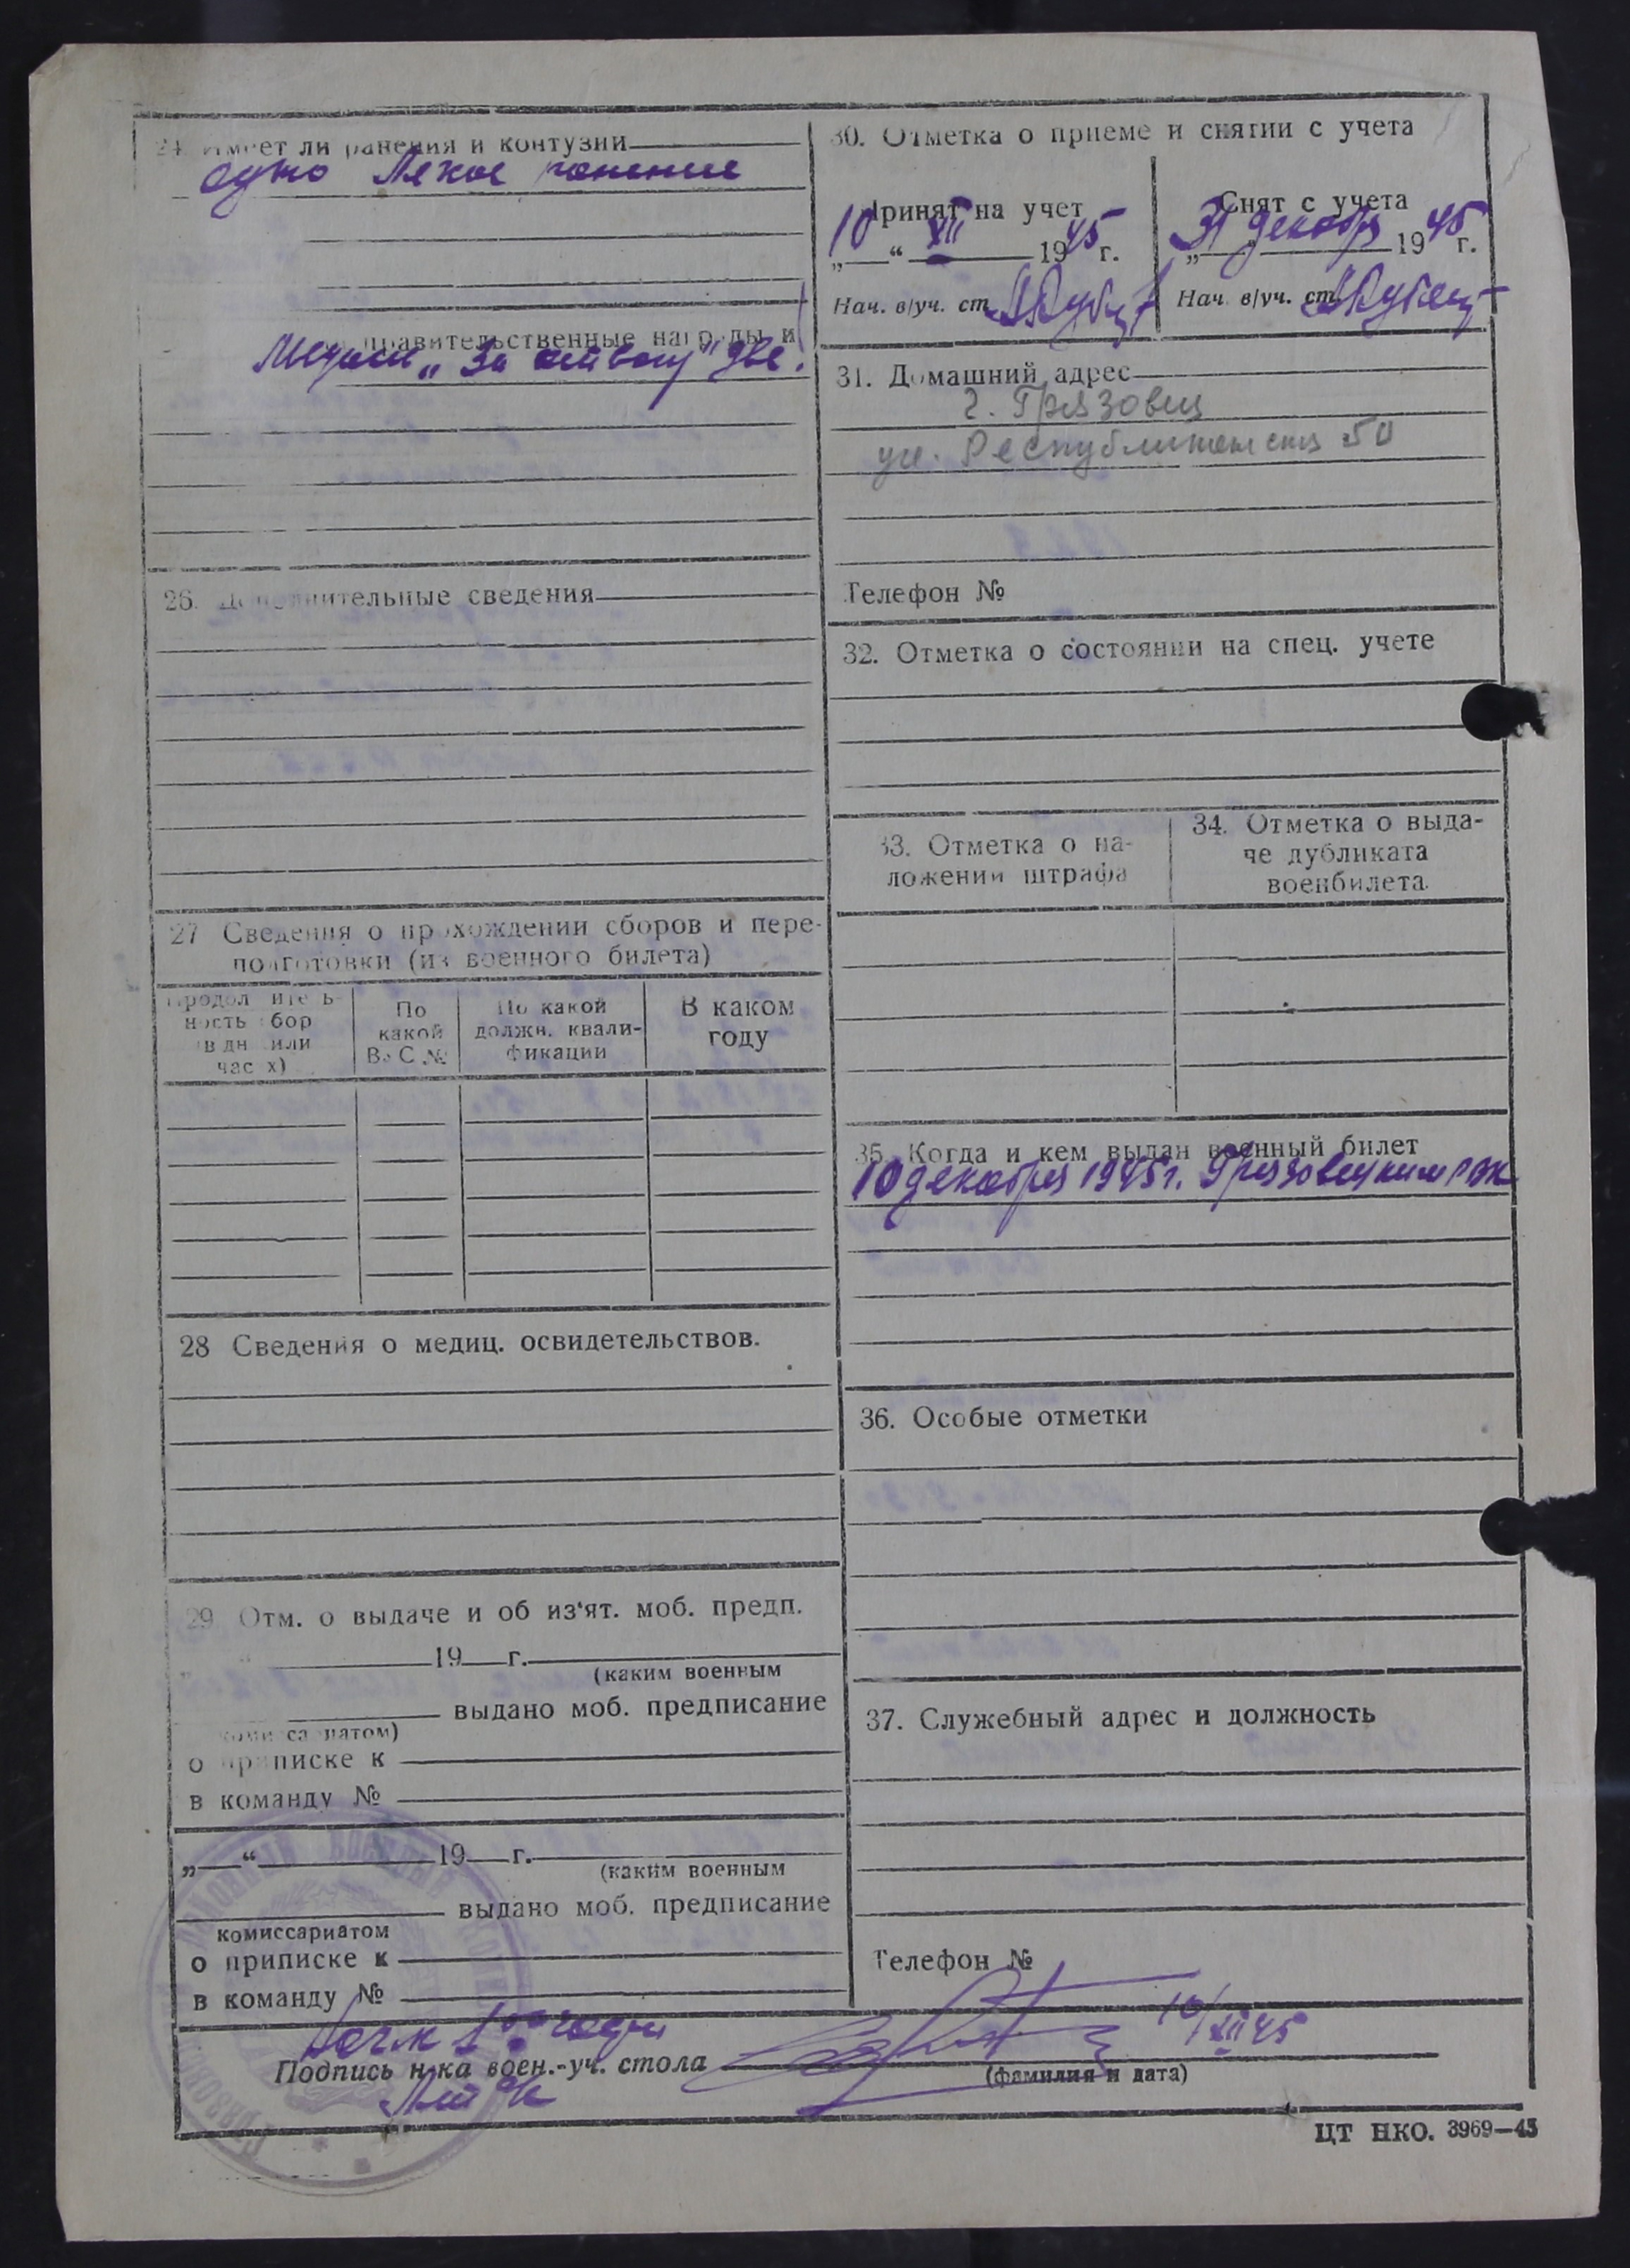 24. Имеет ли ранения и контузии
одно Легкое ранение
правительственные награды и
Медали „За отвагу" две.
26. Дополнительные сведения
27 Сведения о прохождении сборов и пере-
подготовки (из военного билета)
Продолжитель-
ность сбор
в дн или
час х)
По
какой
ВУС №
По какой
должн. квали-
фикации
В каком
году
28 Сведения о медиц. освидетельствов.
29 Отм. о выдаче и об из'ят. моб. предп.
19 г.
(каким военным
выдано моб. предписание
комиссариатом)
о приписке к
в команду №
„ “ 19 г.
(каким военным
выдано моб. предписание
комиссариатом
о приписке к
в команду №
30. Отметка о приеме и снятии с учета
Принят на учет
„10“ XII 1945 г.
Нач. в/уч. ст.
Снят с учета
„31 декабря 1945 г.
Нач. в/уч. ст.
31. Домашний адрес
г. Грязовец
ул. Республиканская 50
Телефон №
32. Отметка о состоянии на спец. учете
33. Отметка о на-
ложении штрафа
34. Отметка о выда-
че дубликата
военбилета.
35. Когда и кем выдан военный билет
10 декабря 1945 г. Грязовецким РВК
36. Особые отметки
37. Служебный адрес и должность
Телефон №
10/XII 45
Подпись н-ка воен.-уч. стола
(фамилия и дата)
ЦТ НКО. 3969—45